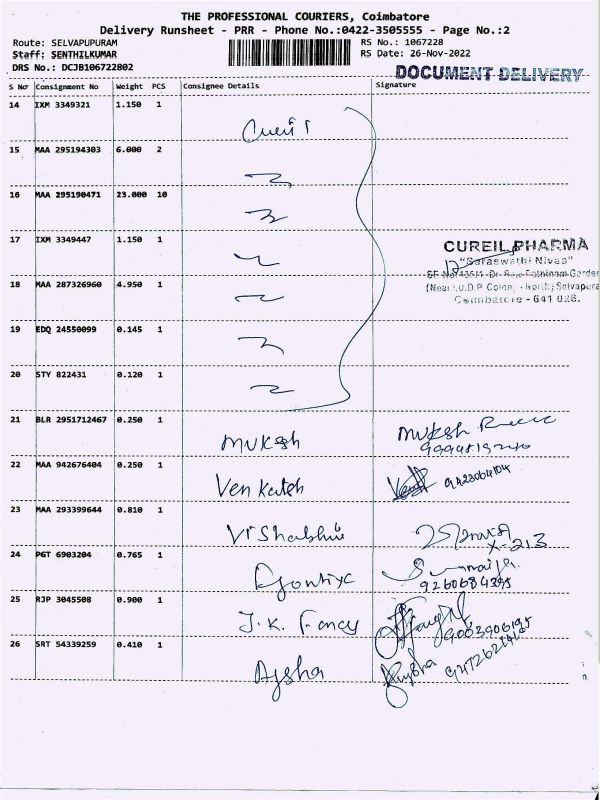 THE PROFESSIONAL COURIERS, Coimbatore
Delivery Runsheet - PRR - Phone No.:0422-3505555 - Page No.:2
Route: SELVAPUPURAM RS No.: 1067228
Staff: SENTHILKUMAR RS Date: 26-Nov-2022
DRS No.: DCJB106722802
DOCUMENT DELIVERY
S No Consignment No Weight PCS Consignee Details Signature
14 IXM 3349321 1.150 1
15 MAA 295194303 6.000 2
16 MAA 295190471 23.000 10
17 IXM 3349447 1.150 1
CUREIL PHARMA
"Saraswathi Nivas"
18 MAA 287326960 4.950 1
Coimbatore - 641 026.
19 EDQ 24550099 0.145 1
20 STY 822431 0.120 1
21 BLR 2951712467 0.250 1 Mukesh Mukesh
22 MAA 942676404 0.250 1 Venkatesh
23 MAA 293399644 0.810 1
X-213
24 PGT 6903204 0.765 1
9260684395
25 RJP 3045508 0.900 1 J.K. Fancy
26 SRT 54339259 0.410 1 Aysha